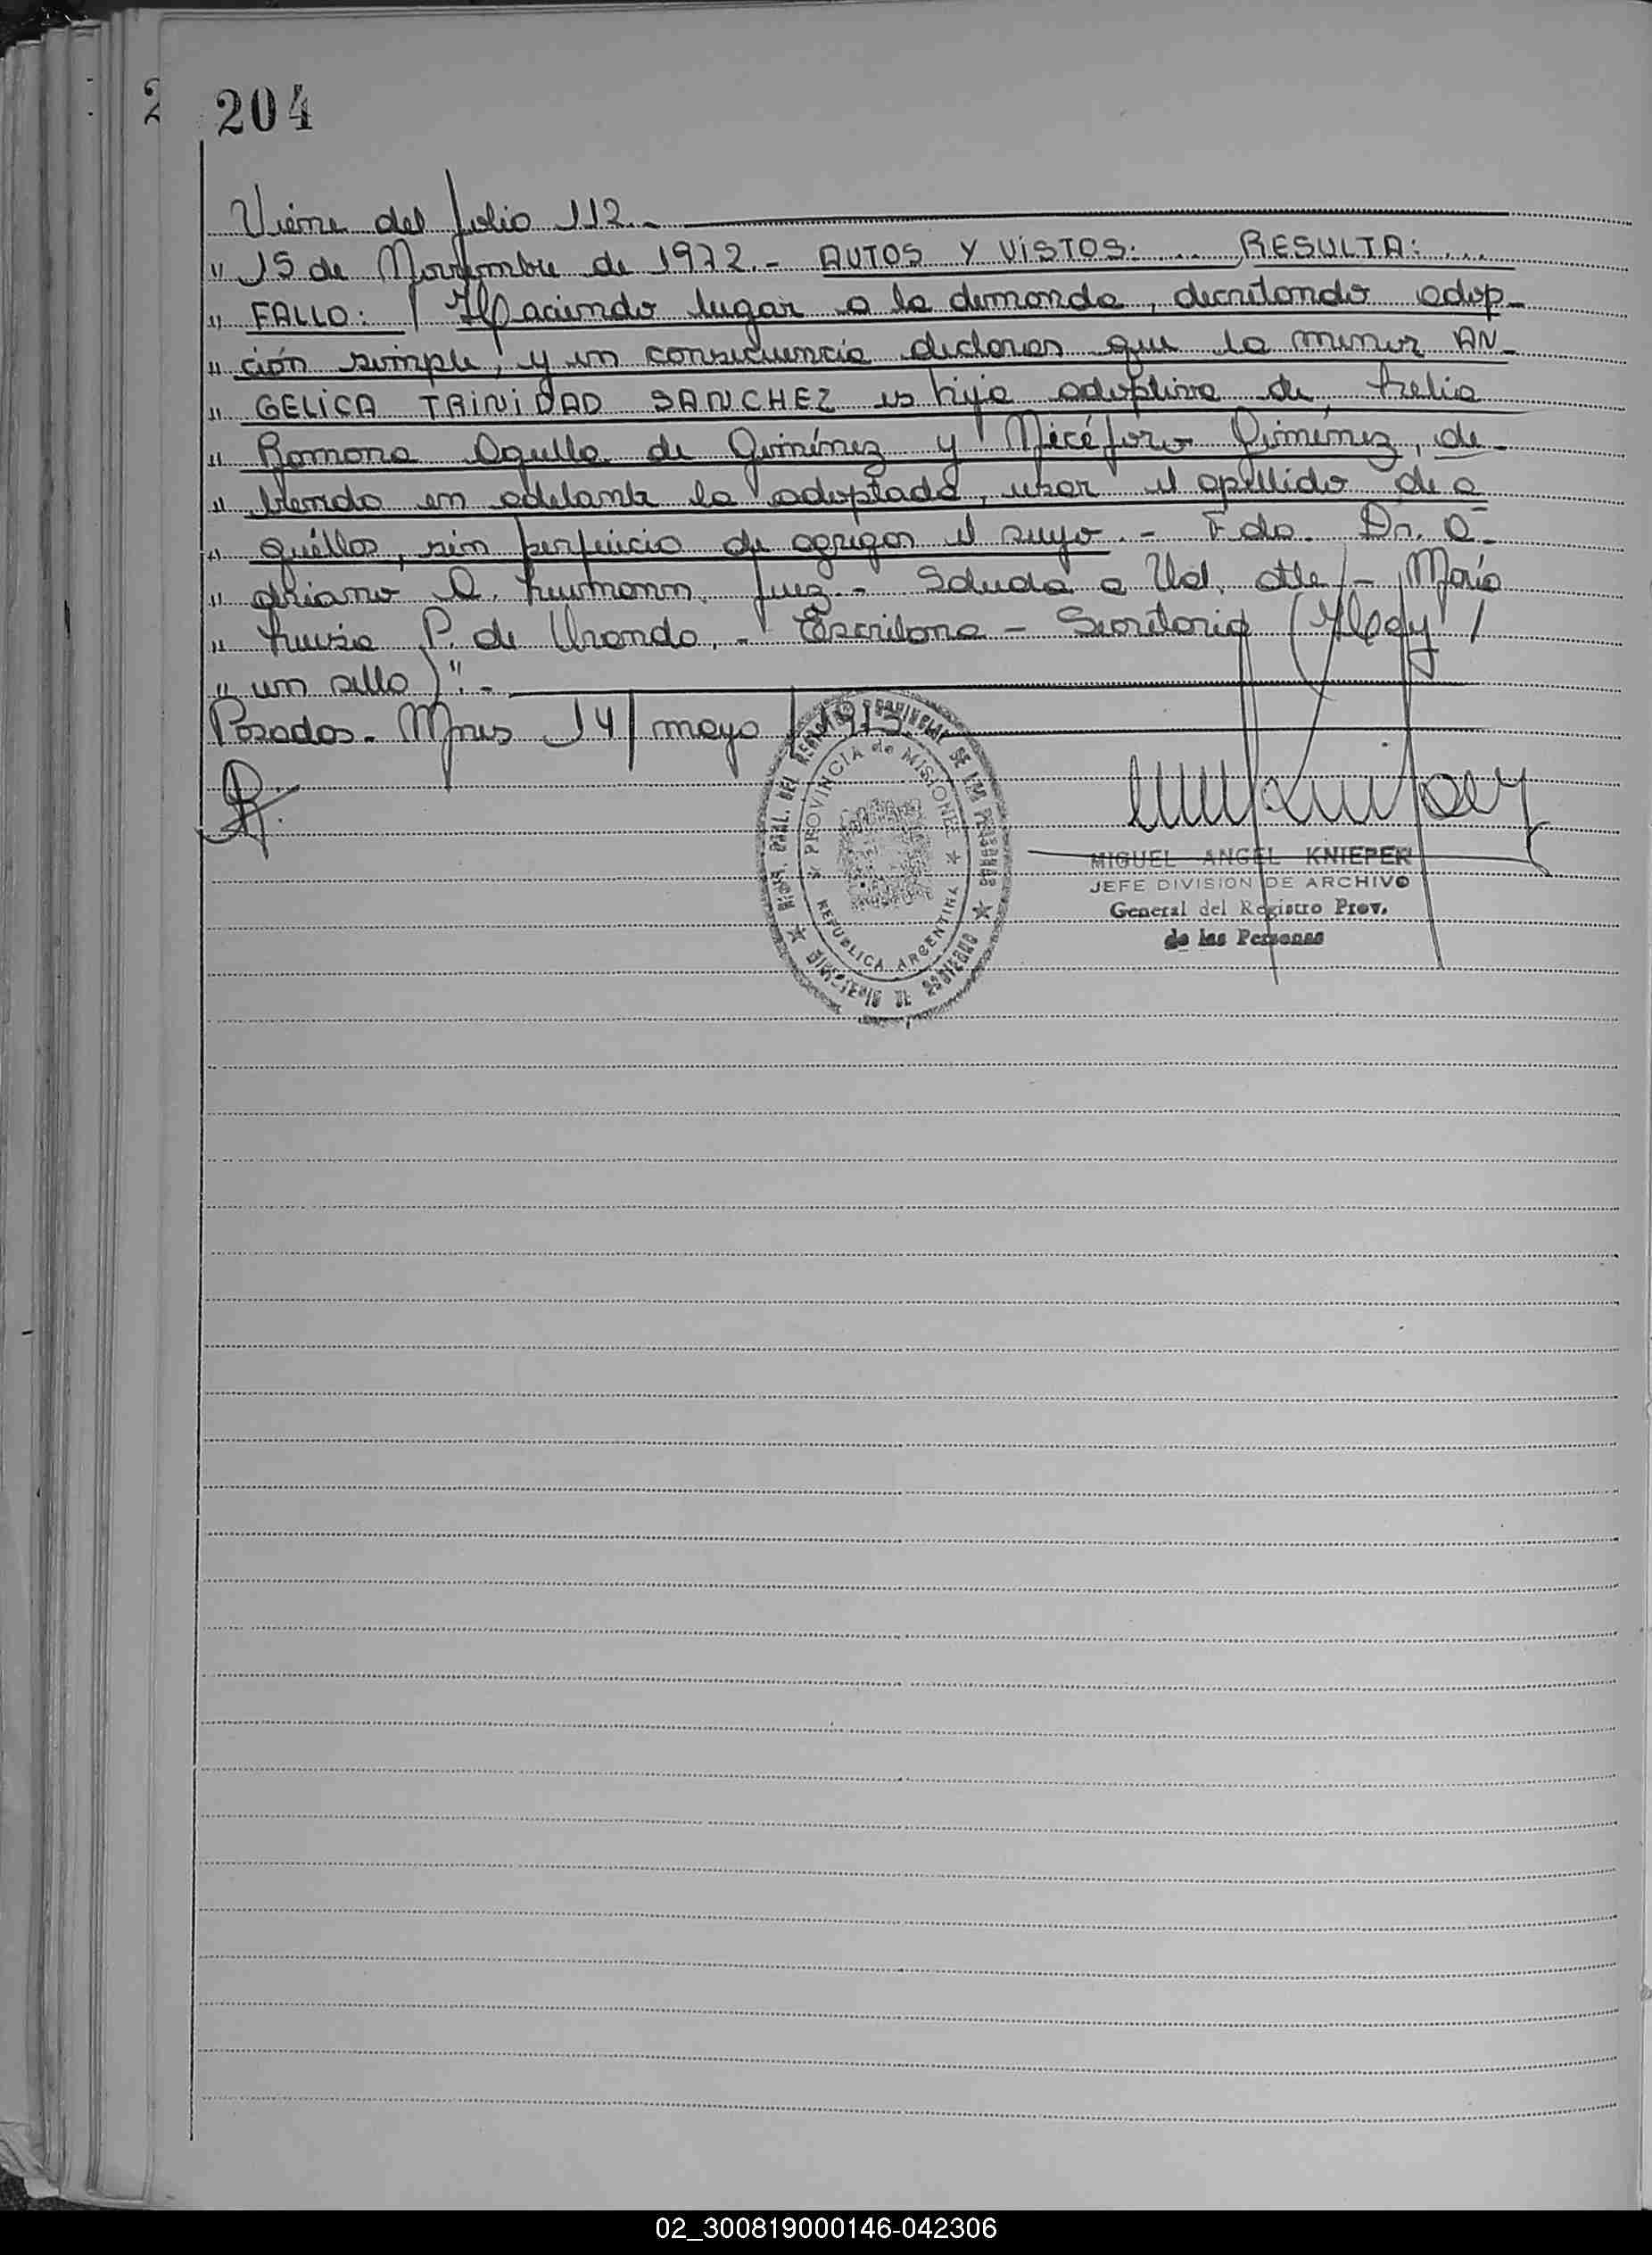 204
Viene del folio 112.-
" 15 de Noviembre de 1972.- AUTOS Y VISTOS: ... RESULTA: ...
" FALLO: I Haciendo lugar a la demanda, decretando adop-
" ción simple, y en consecuencia declarar que la menor AN-
" GELICA TRINIDAD SANCHEZ es hija adoptiva de, Lelia
" Ramona Agullo de Giménez y Nicéforo Gimenez, de-
" biendo en adelante la adoptada, usar el apellido de a
" quéllos, sin perjuicio de agregar el suyo.- Fdo. Dr. 
" A. Neumann. Juez.- Saluda a Ud. atte.- María
" Luisa P. de Urondo.- Escribana - Secretaria (Hay
" un sello)".-
Posadas - Mnes 14/ mayo /
PROVINCIA de MISIONES
REPUBLICA ARGENTINA
MIGUEL ANGEL KNIEPER
JEFE DIVISION DE ARCHIVO
General del Registro Prov.
de las Personas
02_300819000146-042306